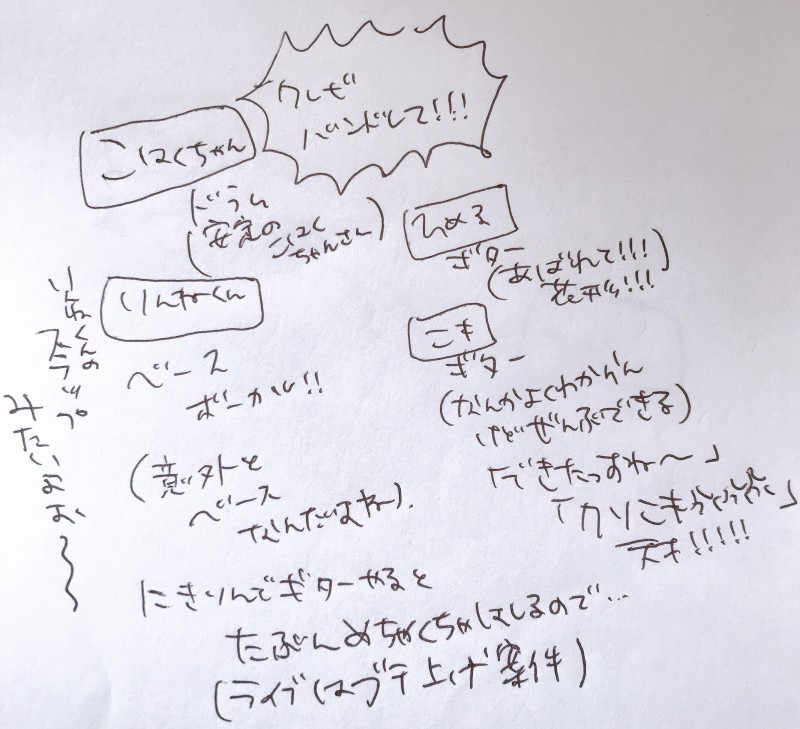 クレビ
バンドして!!!
こはくちゃん
(ドラム
安定の
こはく
ちゃんさん)
ひめる
ギター
(あばれて!!!
花形!!!)
りんねくん
ベース
ボーカル!!
(意外と
ベース
なんだよね)
りんねくんの
スラップ
みたいよお〜〜
こキ
ギター
(なんかよくわからん
けどぜんぶできる)
「できたっすね〜」
「クソニキ
天才!!!!!
にきりんでギターやると
たぶんめちゃくちゃはしるので…
(ライブはブチ上げ案件)